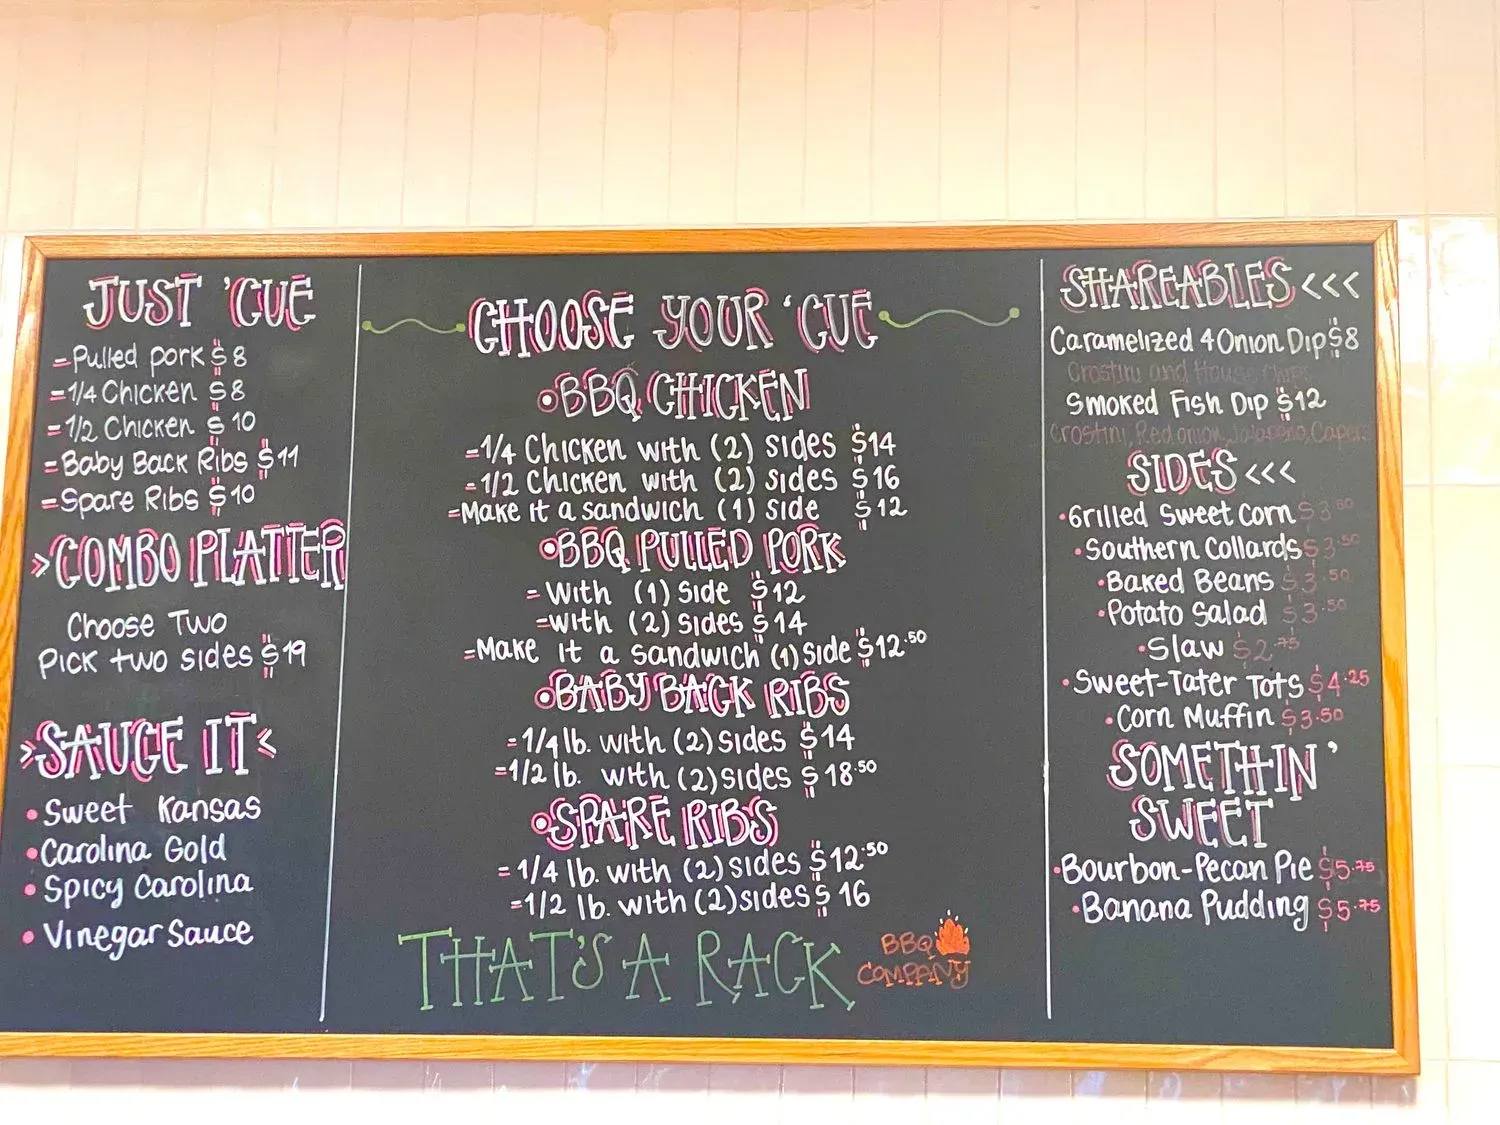 JUST 'CUE
=Pulled pork $8
=1/4 Chicken $8
=1/2 Chicken $10
=Baby Back Ribs $11
=Spare Ribs $10
>COMBO PLATTER
Choose Two
Pick two sides $19
>SAUCE IT<
•Sweet Kansas
•Carolina Gold
•Spicy Carolina
•Vinegar Sauce
CHOOSE YOUR 'CUE
•BBQ CHICKEN
=1/4 Chicken with (2) sides $14
=1/2 Chicken with (2) sides $16
=Make it a sandwich (1) side $12
•BBQ PULLED PORK
=With (1) Side $12
=with (2) sides $14
=Make it a sandwich (1) side $12.50
•BABY BACK RIBS
=1/4 lb. with (2) sides $14
=1/2 lb. with (2) sides $18.50
•SPARE RIBS
=1/4 lb. with (2) sides $12.50
=1/2 lb. with (2) sides $16
THAT'S A RACK
BBQ
COMPANY
SHAREABLES <<<
Caramelized 4 Onion Dip $8
Crostini and House Chips
Smoked Fish Dip $12
Crostini, Red onion, Jalapeno, Capers
SIDES <<<
•Grilled Sweet Corn $3.50
•Southern Collards $3.50
•Baked Beans $3.50
•Potato Salad $3.50
•Slaw $2.75
•Sweet-Tater Tots $4.25
•Corn Muffin $3.50
SOMETHIN'
SWEET
•Bourbon-Pecan Pie $5.75
•Banana Pudding $5.75